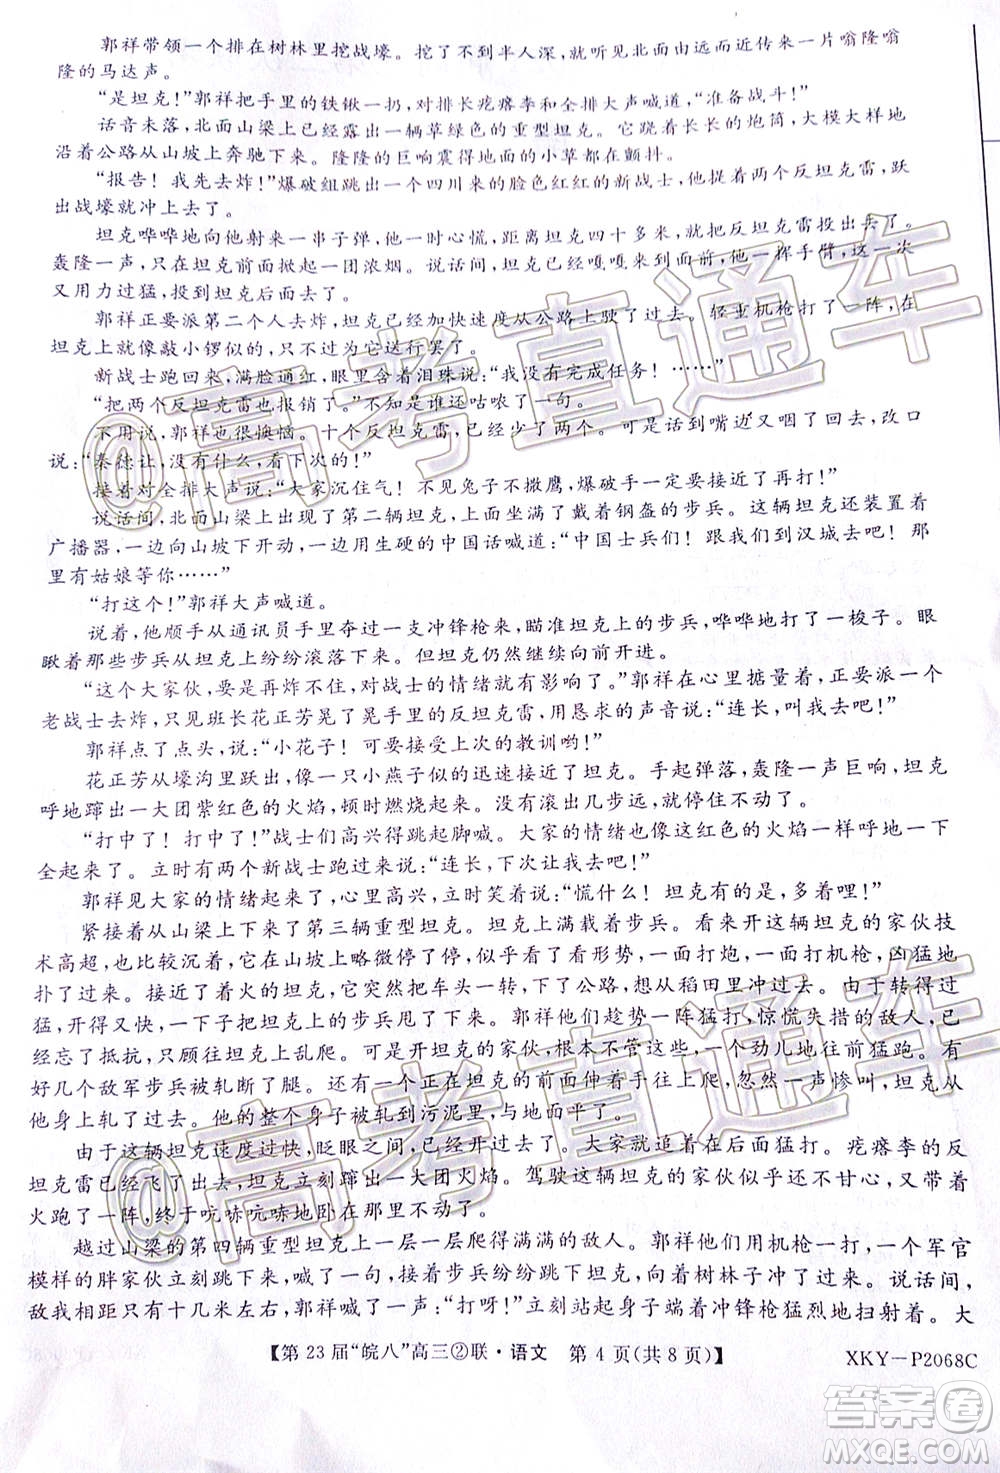 郭祥带领一个排在树林里挖战壕。挖了不到半人深，就听见北面由远而近传来一片嗡隆嗡
隆的马达声。
“是坦克！”郭祥把手里的铁锹一扔，对排长疙瘩李和全排大声喊道，“准备战斗！”
话音未落，北面山梁上已经露出一辆草绿色的重型坦克。它跷着长长的炮筒，大模大样地
沿着公路从山坡上奔驰下来。隆隆的巨响震得地面的小草都在颤抖。
“报告！我先去炸！”爆破组跳出一个四川来的脸色红红的新战士，拿着两个反坦克雷，跃
出战壕就冲上去了。
坦克哗哗地向他射来一串子弹，他一时心慌，距离坦克四十多米，就把反坦克雷投出去了。
轰隆一声，只在坦克前面掀起一团浓烟。说话间，坦克已经嘎嘎地来到面前，他一挥手臂，这一次
又用力过猛，投到坦克后面去了。
郭祥正要派第二个人去炸，坦克已经加快速度从公路上驶了过去。轻重机枪打了一阵，在
坦克上就像敲小锣似的，只不过给它送行罢了。
新战士跑回来，满脸通红，眼里含着泪珠说：“我没有完成任务！……”
“把两个反坦克雷也报销了。”不知是谁还咕哝了一句。
不用说，郭祥也很懊恼。十个反坦克雷，已经少了两个。可是话到嘴边又咽了回去，改口
说：“秦德让，没有什么，看下次的！”
接着对全排大声说：“大家沉住气！不见兔子不撒鹰，爆破手一定要抵近了再打！”
说话间，北面山梁上出现了第二辆坦克，上面坐满了戴着钢盔的步兵。这辆坦克还装置着
广播器，一边向山坡下开动，一边用生硬的中国话喊道：“中国士兵们！跟我们到汉城去吧！那
里有姑娘等你……”
“打这个！”郭祥大声喊道。
说着，他顺手从通讯员手里夺过一支冲锋枪来，瞄准坦克上的步兵，哗哗地打了一梭子。眼
瞅着那些步兵从坦克上纷纷滚落下来。但坦克仍然继续向前开进。
“这个大家伙，要是再炸不住，对战士的情绪就有影响了。”郭祥在心里掂量着，正要派一个
老战士去炸，只见班长花正芳晃了晃手里的反坦克雷，用恳求的声音说：“连长，叫我去吧！”
郭祥点了点头，说：“小花子！可要接受上次的教训哟！”
花正芳从壕沟里跃出，像一只小燕子似的迅速接近了坦克。手起弹落，轰隆一声巨响，坦克
呼地蹿出一大团紫红色的火焰，顿时燃烧起来。没有滚出几步远，就不动了。
“打中了！打中了！”战士们高兴得跳起脚喊。大家的情绪也像这红色的火焰一样呼地一下
全起来了。立时有两个新战士跑过来说：“连长，下次让我去炸吧！”
郭祥见大家的情绪起来了，心里高兴，立时笑着说：“慌什么！坦克有的是，多着哩！”
紧接着从山梁上下来了第三辆重型坦克。坦克上满载着步兵。看来开这辆坦克的家伙技
术高超，也比较沉着，它在山坡上略微停了停，仔细看了看形势，一面打炮，一面打机枪，凶猛地
扑了过来。接近了着火的坦克时，它车头一转，下了公路，想从稻田里冲过去。由于转得过
猛，开得又快，一下子把坦克上的步兵甩了下来。郭祥他们趁势一阵猛打，惊慌失措的敌人，已
经忘了抵抗，只顾往坦克上乱爬。可是开坦克的家伙，根本不管这些，一个劲儿地往前猛跑。有
好几个敌军步兵被轧断了腿。还有一个正在坦克的前面伸着手往上爬，忽然一声惨叫，坦克从他
身上轧了过去。他的整个身子被轧到污泥里，与地面平了。
由于这辆坦克速度过快，眨眼之间，已经开了过去。大家非常着急，一面猛打。疙瘩李的反
坦克雷已经飞了出去，坦克立刻蹿出了一大团火焰。驾驶坦克的家伙似乎还不甘心，又带着
火跑了一阵，终于吭哧吭哧地卧在那里不动了。
越过山梁的第四辆重型坦克上一层一层爬得满满的敌人。郭祥他们用机枪一打，一个军官
模样的胖家伙立刻跳下来，喊了一句，接着步兵纷纷跳下坦克，向着树林子冲了过来。说话间，
敌我相距只有十几米左右，郭祥喊了一声：“打呀！”立刻站起身子端着冲锋枪猛烈地扫射着。大
【第23届“皖八”高三②联·语文　第4页（共8页）】
XKY—P2068C
@高考直通车
@高考直通车
答案圈
MXQE.COM